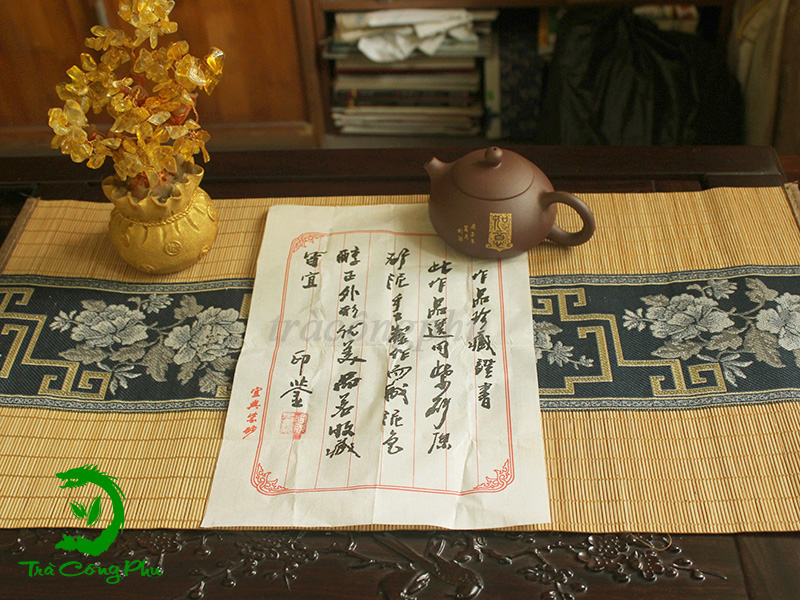 作品珍藏證書
此作品選用紫砂原
砂泥手工製作而成泥色
醇正外形優美品茗收藏
皆宜
印鑒
宜興紫砂
Trà Công Phu